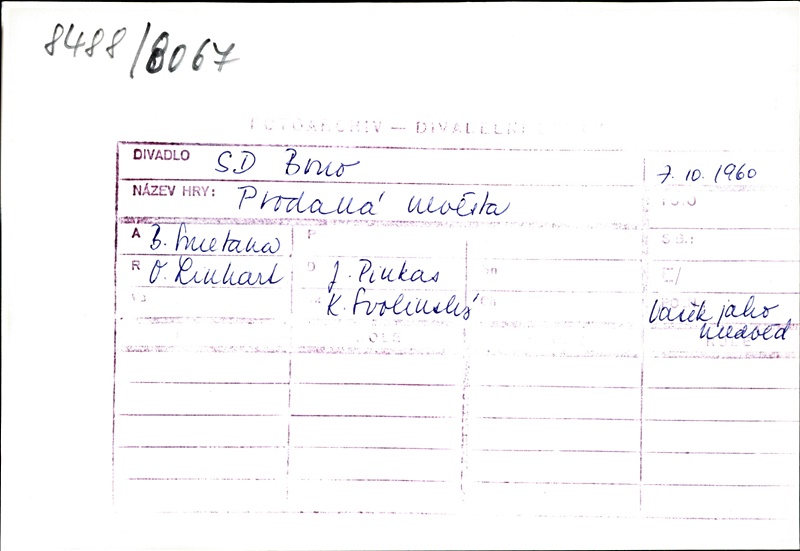 8488/8067
FOTOARCHIV – DIVADELNÍ
DIVADLO SD Brno 7. 10. 1960
NÁZEV HRY: Prodaná nevěsta
A B. Smetana P
R O. Linhart D J. Pinkas
K. Svolinský Vašek jako
medvěd